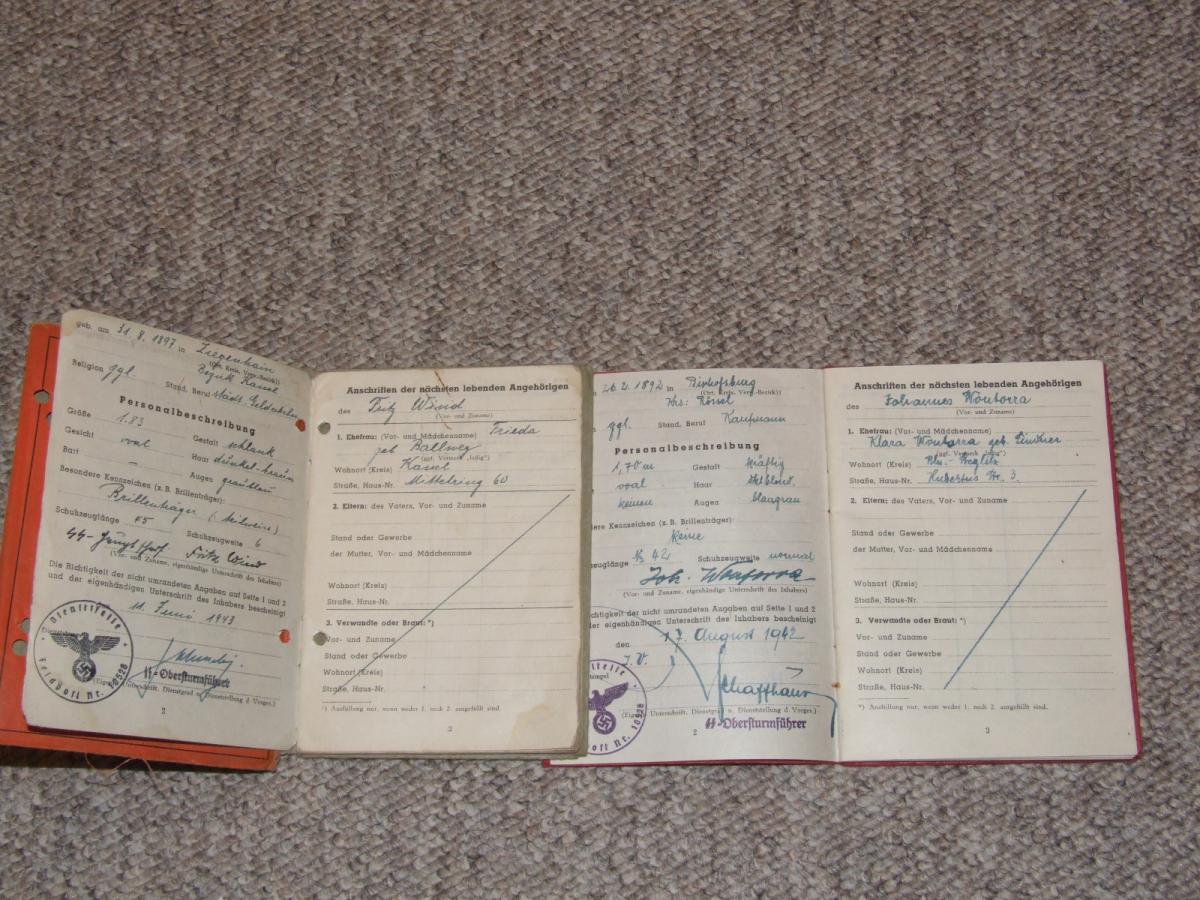 geb. am 31. 8. 1897 in Ziegenhain
(Ort, Kreis, Verw.-Bezirk)
Bezirk Kassel
Religion ggl. Stand, Beruf städt.
Personalbeschreibung
Größe 1.83 Gestalt schlank
Gesicht oval Haar dunkel-braun
Bart – Augen graublau
Besondere Kennzeichen (z. B. Brillenträger):
Brillenträger (teilweise)
Schuhzeuglänge 45 Schuhzeugweite 6
Fritz Wind
(Vor- und Zuname, eigenhändige Unterschrift des Inhabers)
Die Richtigkeit der nicht umrandeten Angaben auf Seite 1 und 2
und der eigenhändigen Unterschrift des Inhabers bescheinigt
11. Juni 1943
Dienststelle
Feldpost Nr. 10528
SS-Obersturmführer
(Eigenh. Unterschrift, Dienstgrad u. Dienststellung d. Vorges.)
2
Anschriften der nächsten lebenden Angehörigen
des Fritz Wind
(Vor- und Zuname)
1. Ehefrau: (Vor- und Mädchenname) Frieda
geb Ballweg
(ggf. Vermerk „ledig")
Wohnort (Kreis) Kassel
Straße, Haus-Nr. Mittelring 60
2. Eltern: des Vaters, Vor- und Zuname
Stand oder Gewerbe
der Mutter, Vor- und Mädchenname
Wohnort (Kreis)
Straße, Haus-Nr.
3. Verwandte oder Braut: *)
Vor- und Zuname
Stand oder Gewerbe
Wohnort (Kreis)
Straße, Haus-Nr.
*) Ausfüllung nur, wenn weder 1. noch 2. ausgefüllt sind.
3
1892 in Bischofsburg
(Ort, Kreis, Verw.-Bezirk)
Krs: Rössel
ggl. Stand, Beruf Kaufmann
Personalbeschreibung
1,70 m Gestalt kräftig
oval Haar
keinen Augen blaugrau
dere Kennzeichen (z. B. Brillenträger):
Keine
zeuglänge 42 Schuhzeugweite normal
Joh. Wontorra
(Vor- und Zuname, eigenhändige Unterschrift des Inhabers)
chtigkeit der nicht umrandeten Angaben auf Seite 1 und 2
der eigenhändigen Unterschrift des Inhabers bescheinigt
den 17. August 1942
J. V.
Schaffhaus
nststelle
post Nr. 10528
(Eig Unterschrift, Dienstgrad u. Dienststellung d. Vorges.)
SS-Obersturmführer
2
Anschriften der nächsten lebenden Angehörigen
des Johannes Wontorra
(Vor- und Zuname)
1. Ehefrau: (Vor- und Mädchenname)
Klara Wontorra geb.
(ggf. Vermerk „ledig")
Wohnort (Kreis) Bln.-Steglitz
Straße, Haus-Nr. Hubertus Str. 3.
2. Eltern: des Vaters, Vor- und Zuname
Stand oder Gewerbe
der Mutter, Vor- und Mädchenname
Wohnort (Kreis)
Straße, Haus-Nr.
3. Verwandte oder Braut: *)
Vor- und Zuname
Stand oder Gewerbe
Wohnort (Kreis)
Straße, Haus-Nr.
*) Ausfüllung nur, wenn weder 1. noch 2. ausgefüllt sind.
3